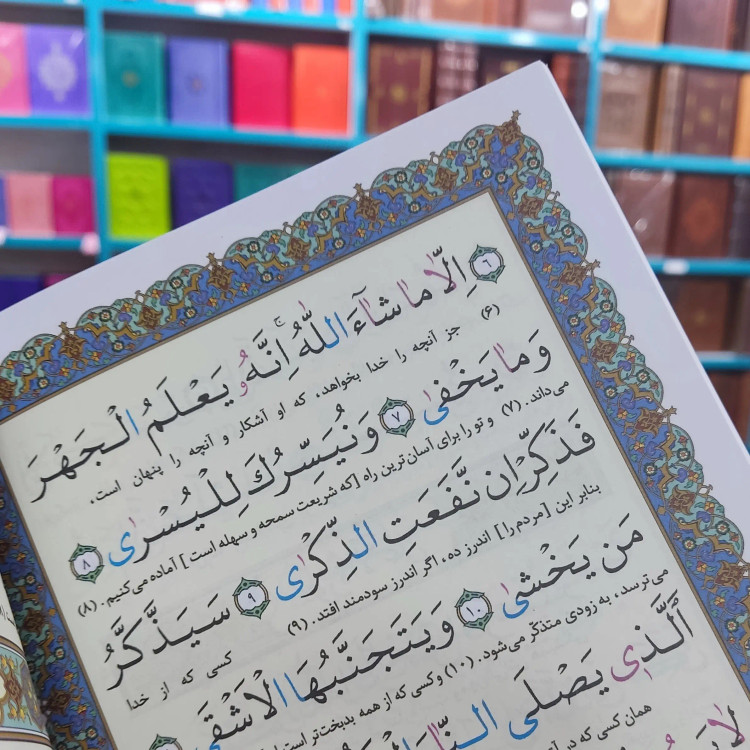 ۶ إِلَّا مَا شَآءَ اللَّهُ ۚ إِنَّهُ و يَعْلَمُ الْجَهْرَ
(۶) جز آنچه را خدا بخواهد، که او آشکار و آنچه را پنهان است،
وَمَا يَخْفَىٰ ۷ وَنُيَسِّرُكَ لِلْيُسْرَىٰ ۸
می‌داند. (۷) و تو را برای آسان‌ترین راه [که شریعت سمحه و سهله است] آماده می‌کنیم. (۸)
فَذَكِّرْ إِن نَّفَعَتِ الذِّكْرَىٰ ۹ سَيَذَّكَّرُ
بنابر این [مردم را] اندرز ده، اگر اندرز سودمند افتد. (۹) کسی که از خدا
مَن يَخْشَىٰ ۱۰ وَيَتَجَنَّبُهَا الْأَشْقَى
می ترسد، به زودی متذکّر می‌شود. (۱۰) و کسی که از همه بدبخت‌تر است
الَّذِي يَصْلَى النَّا
همان کسی که در